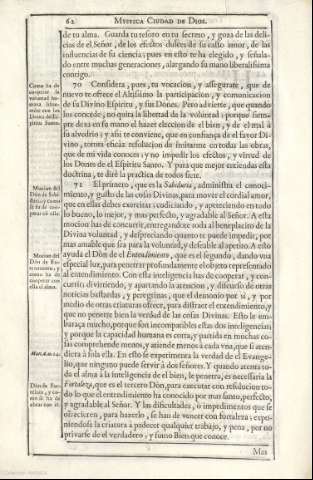 62 MYSTICA CIUDAD DE DIOS.
de tu alma. Guarda tu tesoro en tu secreto, y goza de las deli-
cias de el Señor, de los efectos dulces de su casto amor, de las
influencias de su ciencia; pues en esto te ha elegido, y señala-
do entre muchas generaciones, alargando su mano liberalissima
contigo.
70 Considera, pues, tu vocacion, y assegurate, que de
nuevo te ofrece el Altissimo la participacion, y comunicacion
de su Divino Espiritu, y sus Dones. Pero advierte, que quando
los concede, no quita la libertad de la voluntad; porque siem-
pre dexa en su mano el hazer eleccion de el bien, y de el mal à
su alvedrio; y assi te conviene, que en confiança de el favor Di-
vino, tomes eficàz resolucion de imitarme en todas las obras,
que de mi vida conoces; y no impedir los efectos, y virtud de
los Dones de el Espiritu Santo. Y para que mejor entiendas esta
doctrina, te dirè la practica de todos siete.
71 El primero, que es la Sabiduria, administra el conoci-
miento, y gusto de las cosas Divinas, para mover el cordial amor,
que en ellas debes exercitar; codiciando, y apeteciendo en todo
lo bueno, lo mejor, y mas perfecto, y agradable al Señor. A esta
mocion has de concurrir, entregandote toda al beneplacito de la
Divina voluntad, y despreciando quanto te puede impedir; por
mas amable que sea para la voluntad, y deseable al apetito. A esto
ayuda el Dòn de el Entendimiento, que es el segundo, dando una
especial luz, para penetrar profundamente el objeto representado
al entendimiento. Con esta inteligencia has de cooperar, y con-
currir; divirtiendo, y apartando la atencion, y discurso de otras
noticias bastardas, y peregrinas, que el demonio por sì, y por
medio de otras criaturas ofrece, para distraer el entendimiento, y
que no penetre bien la verdad de las cosas Divinas. Esto le em-
baraça mucho, porque son incompatibles estas dos inteligencias;
y porque la capacidad humana es corta, y partida en muchas co-
sas comprehende menos, y atiende menos à cada una, que si aten-
diera à sola ella. En esto se experimenta la verdad de el Evange-
lio, que ninguno puede servir à dos señores. Y quando atenta to-
do el alma à la inteligencia de el bien, le penetra, es necessaria la
Fortaleza, que es el tercero Dòn, para executar con resolucion to-
do lo que el entendimiento ha conocido por mas santo, perfecto,
y agradable al Señor. Y las dificultades, ò impedimentos que se
ofrecieren, para hazerlo, se han de vencer con fortaleza; expo-
niendose la criatura à padecer qualquier trabajo, y pena, por no
privarse de el verdadero, y sumo Bien que conoce.
Mas
Como ha de
cooperar la
voluntad hu-
mana
con los
Dones de el Es-
piritu Santo.
Mocion del
Dòn de Sabi-
duria, y como
se ha de coo-
perar con ella.
Mocion del
Dòn de En-
tendimiento, y
como ha de
cooperar con
ella el alma.
Matt. 6. n. 24.
Dòn de For-
taleza, y co-
mo se ha de
obrar con èl.